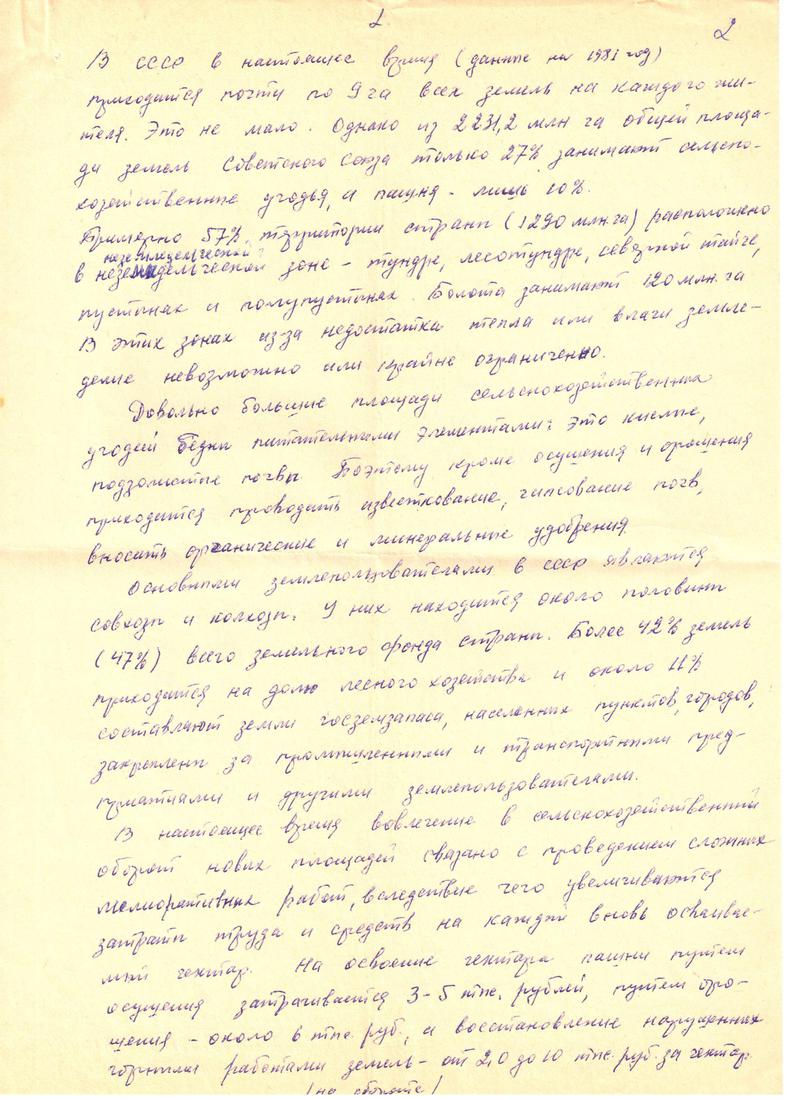 1. 2
В СССР в настоящее время (данные на 1981 год)
приходится почти по 9 га всех земель на каждого жи-
теля. Это не мало. Однако из 2231,2 млн га общей площа-
ди земель Советского Союза только 27% занимают сельско-
хозяйственные угодья, а пашня - лишь 10%.
Примерно 57% территории страны (1290 млн.га) расположено
неземледельческой
в неземледельческой зоне - тундре, лесотундре, северной тайге,
пустынях и полупустынях. Болота занимают 120 млн. га
В этих зонах из-за недостатка тепла или влаги земле-
делие невозможно или крайне ограниченно.
Довольно большие площади сельскохозяйственных
угодей бедны питательными элементами: это кислые,
подзолистые почвы. Поэтому кроме осушения и орошения
приходится проводить известкование, гипсование почв,
вносить органические и минеральные удобрения.
Основными землепользователями в СССР являются
совхозы и колхозы. У них находится около половины
(47%) всего земельного фонда страны. Более 42% земель
приходится на долю лесного хозяйства и около 11%
составляют земли госземзапаса, населенных пунктов, городов,
закреплены за промышленными и транспортными пред-
приятиями и другими землепользователями.
В настоящее время вовлечение в сельскохозяйственный
оборот новых площадей связано с проведением сложных
мелиоративных работ, вследствие чего увеличиваются
затраты труда и средств на каждый вновь осваивае-
мый гектар. На освоение гектара пашни путем
осушения затрачивается 3-5 тыс. рублей, путем оро-
шения - около 6 тыс. руб., а восстановление нарушенных
горными работами земель - от 2,0 до 10 тыс. руб. за гектар.
(на обороте)